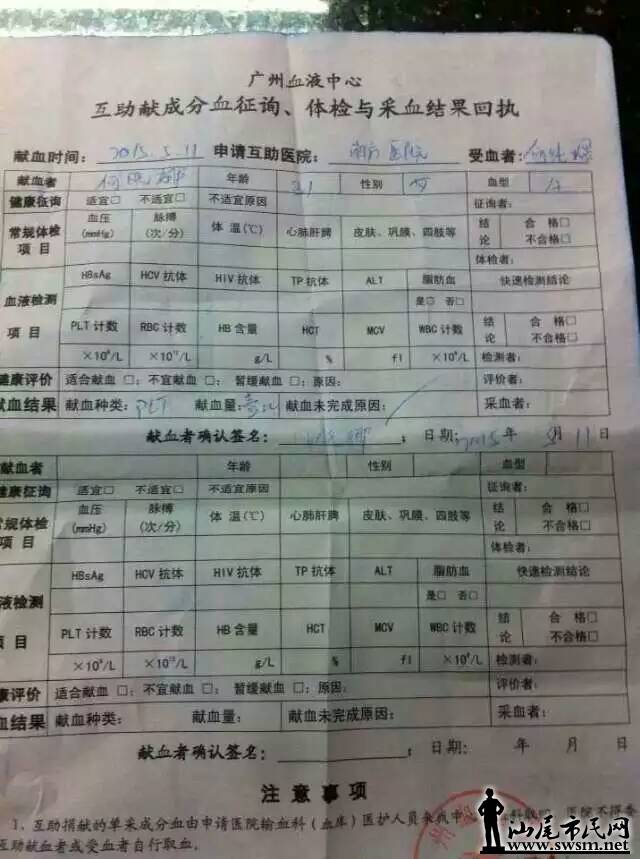 广州血液中心
互助献成分血征询、体检与采血结果回执
献血时间: 2015.5.11 申请互助医院: 南方医院 受血者:
献血者 何 年龄 21 性别 女 血型 A
健康征询 适宜□ 不适宜□ 不适宜原因 征询者:
常规体检项目 血压(mmHg) 脉搏(次/分) 体 温(℃) 心肺肝脾 皮肤、巩膜、四肢等 结论 合 格□ 不合格□
体检者:
血液检测项目 HBsAg HCV抗体 HIV抗体 TP抗体 ALT 脂肪血 快速检测结论
是□ 否□
PLT计数 RBC计数 HB含量 HCT MCV WBC计数 结论 合 格□ 不合格□
×10⁹/L ×10¹²/L g/L % fl ×10⁹/L 检测者:
健康评价 适合献血 □; 不宜献血 □; 暂缓献血 □; 原因: 评价者:
献血结果 献血种类: PLT 献血量: 献血未完成原因: 采血者:
献血者确认签名: ; 日期: 2015年 5月 11日
献血者 年龄 性别 血型
健康征询 适宜□ 不适宜□ 不适宜原因 征询者:
常规体检项目 血压(mmHg) 脉搏(次/分) 体 温(℃) 心肺肝脾 皮肤、巩膜、四肢等 结论 合 格□ 不合格□
体检者:
液检测项目 HBsAg HCV抗体 HIV抗体 TP抗体 ALT 脂肪血 快速检测结论
是□ 否□
PLT计数 RBC计数 HB含量 HCT MCV WBC计数 结论 合 格□ 不合格□
×10⁹/L ×10¹²/L g/L % fl ×10⁹/L 检测者:
康评价 适合献血 □; 不宜献血 □; 暂缓献血 □; 原因: 评价者:
血结果 献血种类: 献血量: 献血未完成原因: 采血者:
献血者确认签名: ; 日期: 年 月 日
注 意 事 项
1、互助捐献的单采成分血由申请医院输血科(血库)医护人员来我中心 科取 医院不得委
互助献血者或受血者自行取血。
汕尾市民网
www.swsm.net